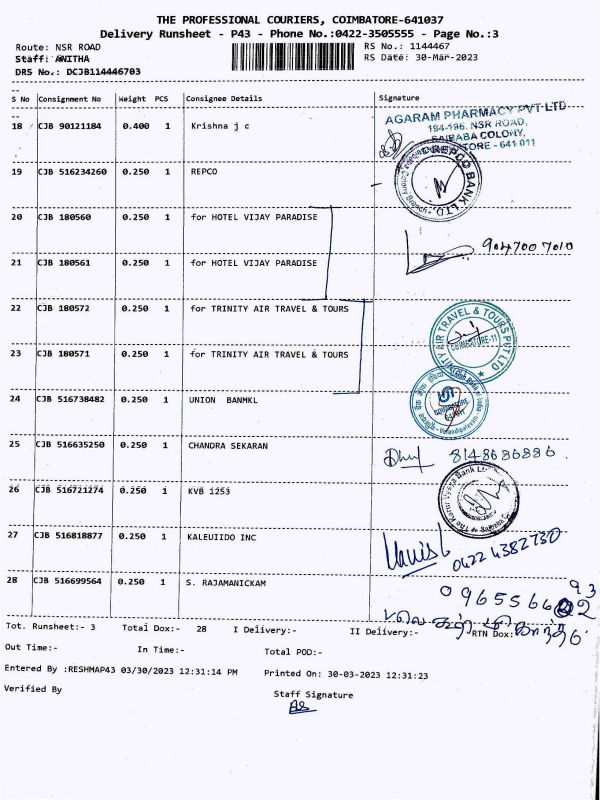 THE PROFESSIONAL COURIERS, COIMBATORE-641037
Delivery Runsheet - P43 - Phone No.:0422-3505555 - Page No.:3
Route: NSR ROAD RS No.: 1144467
Staff: ANITHA RS Date: 30-Mar-2023
DRS No.: DCJB114446703
S No Consignment No Weight PCS Consignee Details Signature
AGARAM PHARMACY PVT LTD
194-196, NSR ROAD,
SAIBABA COLONY,
18 CJB 90121184 0.400 1 Krishna j c
641 011
19 CJB 516234260 0.250 1 REPCO
REPCO BANK LTD.
20 CJB 180560 0.250 1 for HOTEL VIJAY PARADISE
9047007010
21 CJB 180561 0.250 1 for HOTEL VIJAY PARADISE
22 CJB 180572 0.250 1 for TRINITY AIR TRAVEL & TOURS
TRINITY AIR TRAVEL & TOURS PVT LTD
COIMBATORE-11
23 CJB 180571 0.250 1 for TRINITY AIR TRAVEL & TOURS
24 CJB 516738482 0.250 1 UNION BANMKL
25 CJB 516635250 0.250 1 CHANDRA SEKARAN 8148686886.
26 CJB 516721274 0.250 1 KVB 1253
27 CJB 516818877 0.250 1 KALEUIIDO INC
0422 4382730
28 CJB 516699564 0.250 1 S. RAJAMANICKAM
Tot. Runsheet:- 3 Total Dox:- 28 I Delivery:- II Delivery:- RTN Dox:
Out Time:- In Time:- Total POD:-
Entered By :RESHMAP43 03/30/2023 12:31:14 PM Printed On: 30-03-2023 12:31:23
Verified By Staff Signature